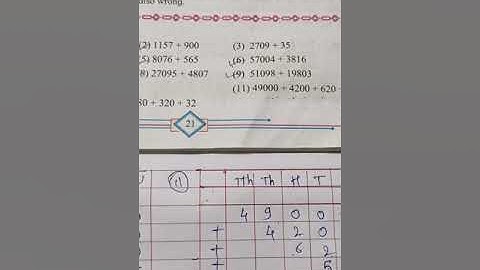 also wrong.
(2) 1157 + 900 (3) 2709 + 35
(5) 8076 + 565 (6) 57004 + 3816
(8) 27095 + 4807 (9) 51098 + 19803
(11) 49000 + 4200 + 620 +
80 + 320 + 32
21
U (11) TTh Th H T
4 9 0 0
+ 4 2 0
+ 6 2
+ 5